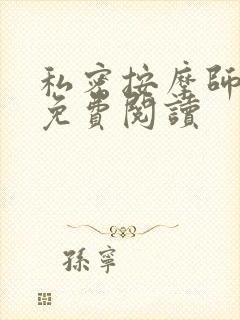 私密按摩師
免費閱讀
孫寧